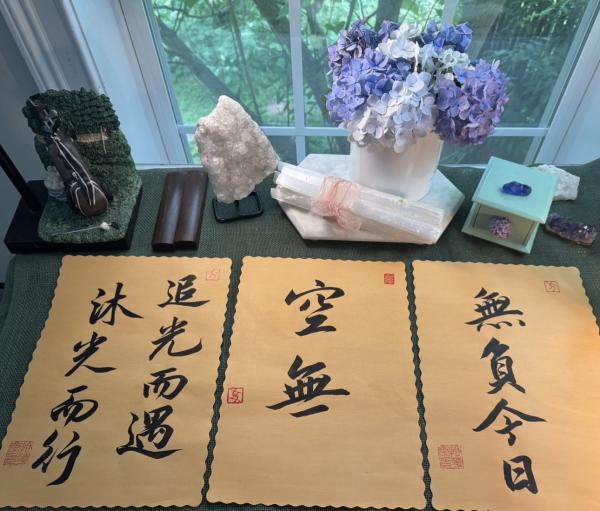 追光而遇
沐光而行
空無
無負今日